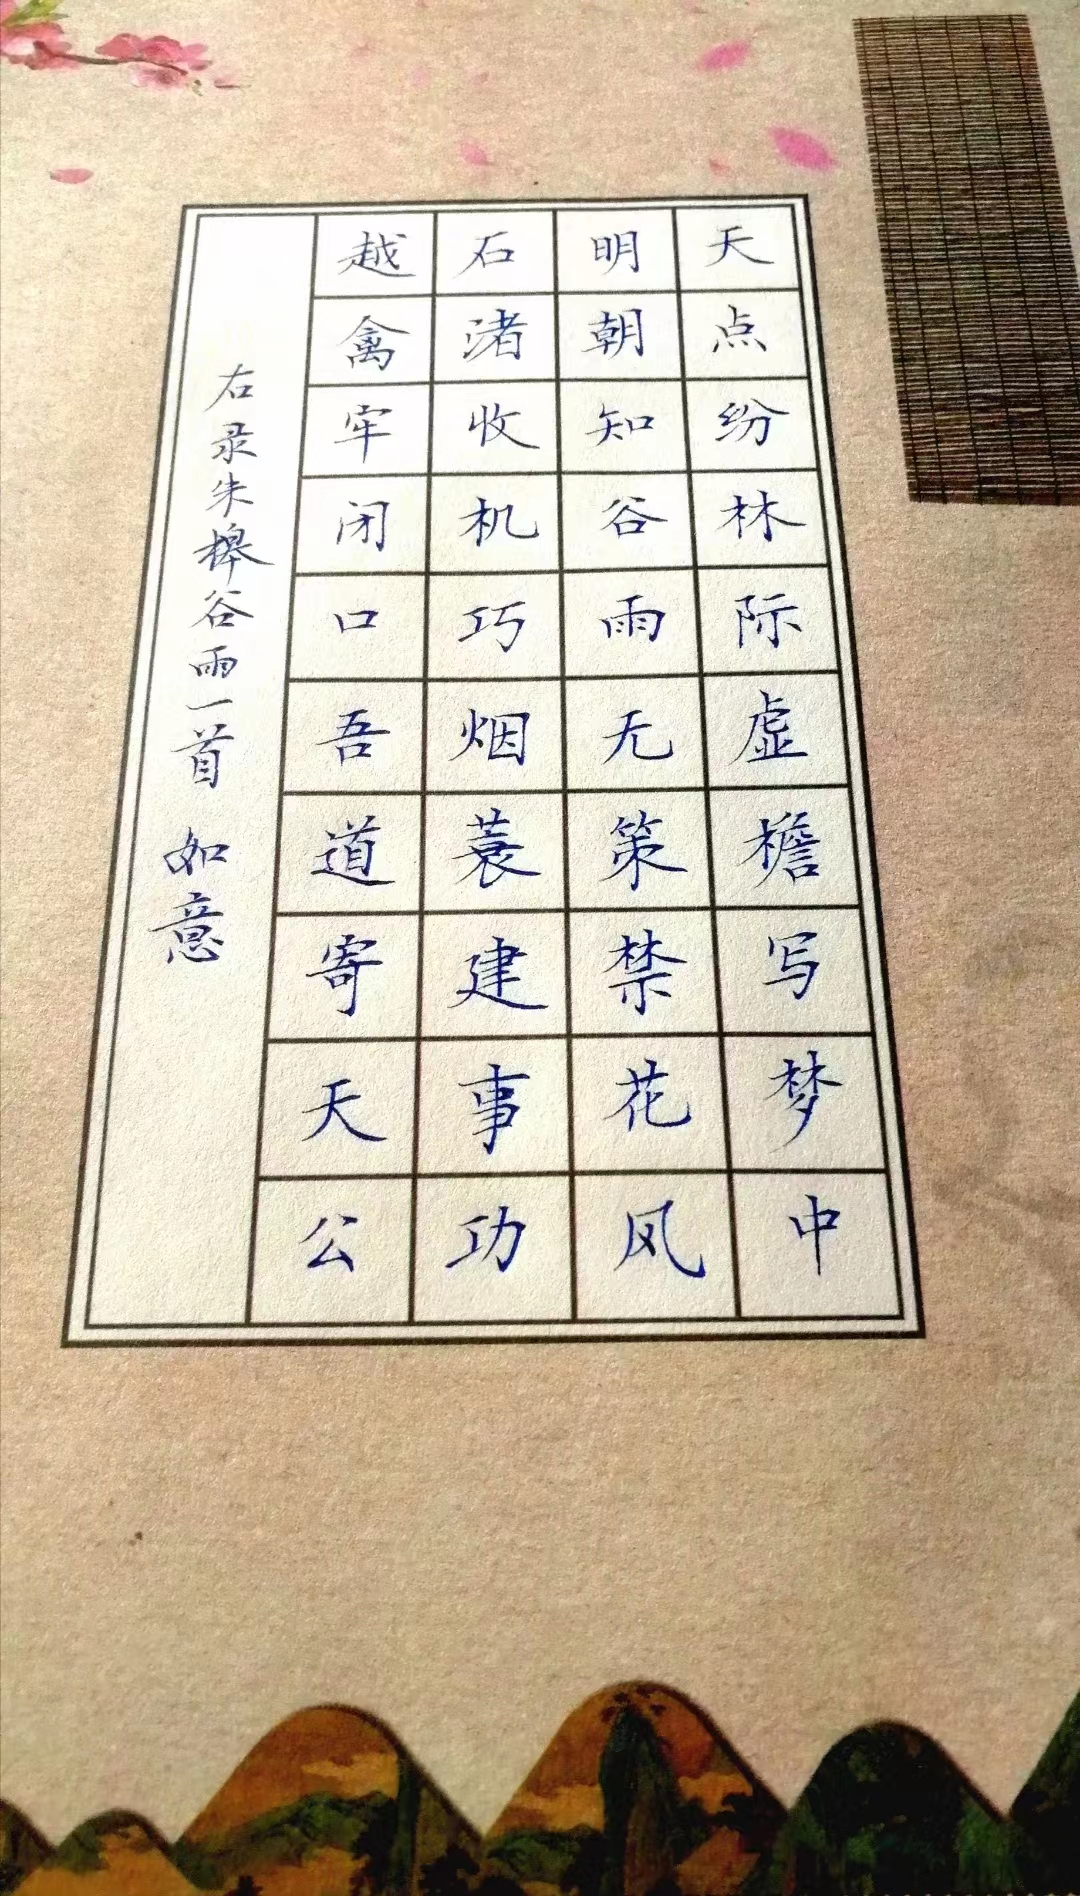 天点纷林际虚檐写梦中
明朝知谷雨无策禁花风
石渚收机巧烟蓑建事功
越禽牢闭口吾道寄天公
右录朱槔谷雨一首 如意